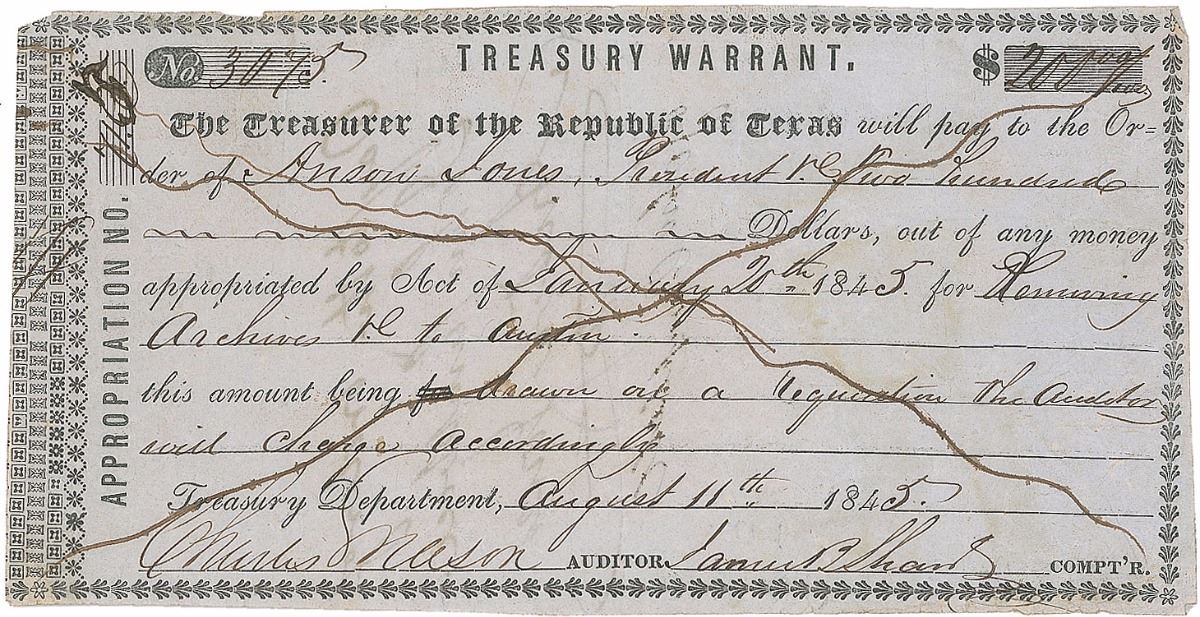 TREASURY WARRANT.
No. 3075
$ 200 00/100
The Treasurer of the Republic of Texas will pay to the Or=
der of Anson Jones, President &c Two Hundred
Dollars, out of any money
appropriated by Act of January 20th 1845. for Removing
Archives &c to Austin.
this amount being drawn on a requisition the Auditor
will charge accordingly
Treasury Department, August 11th 1845.
Charles Mason AUDITOR James B Shaw COMPT'R.
APPROPRIATION NO.